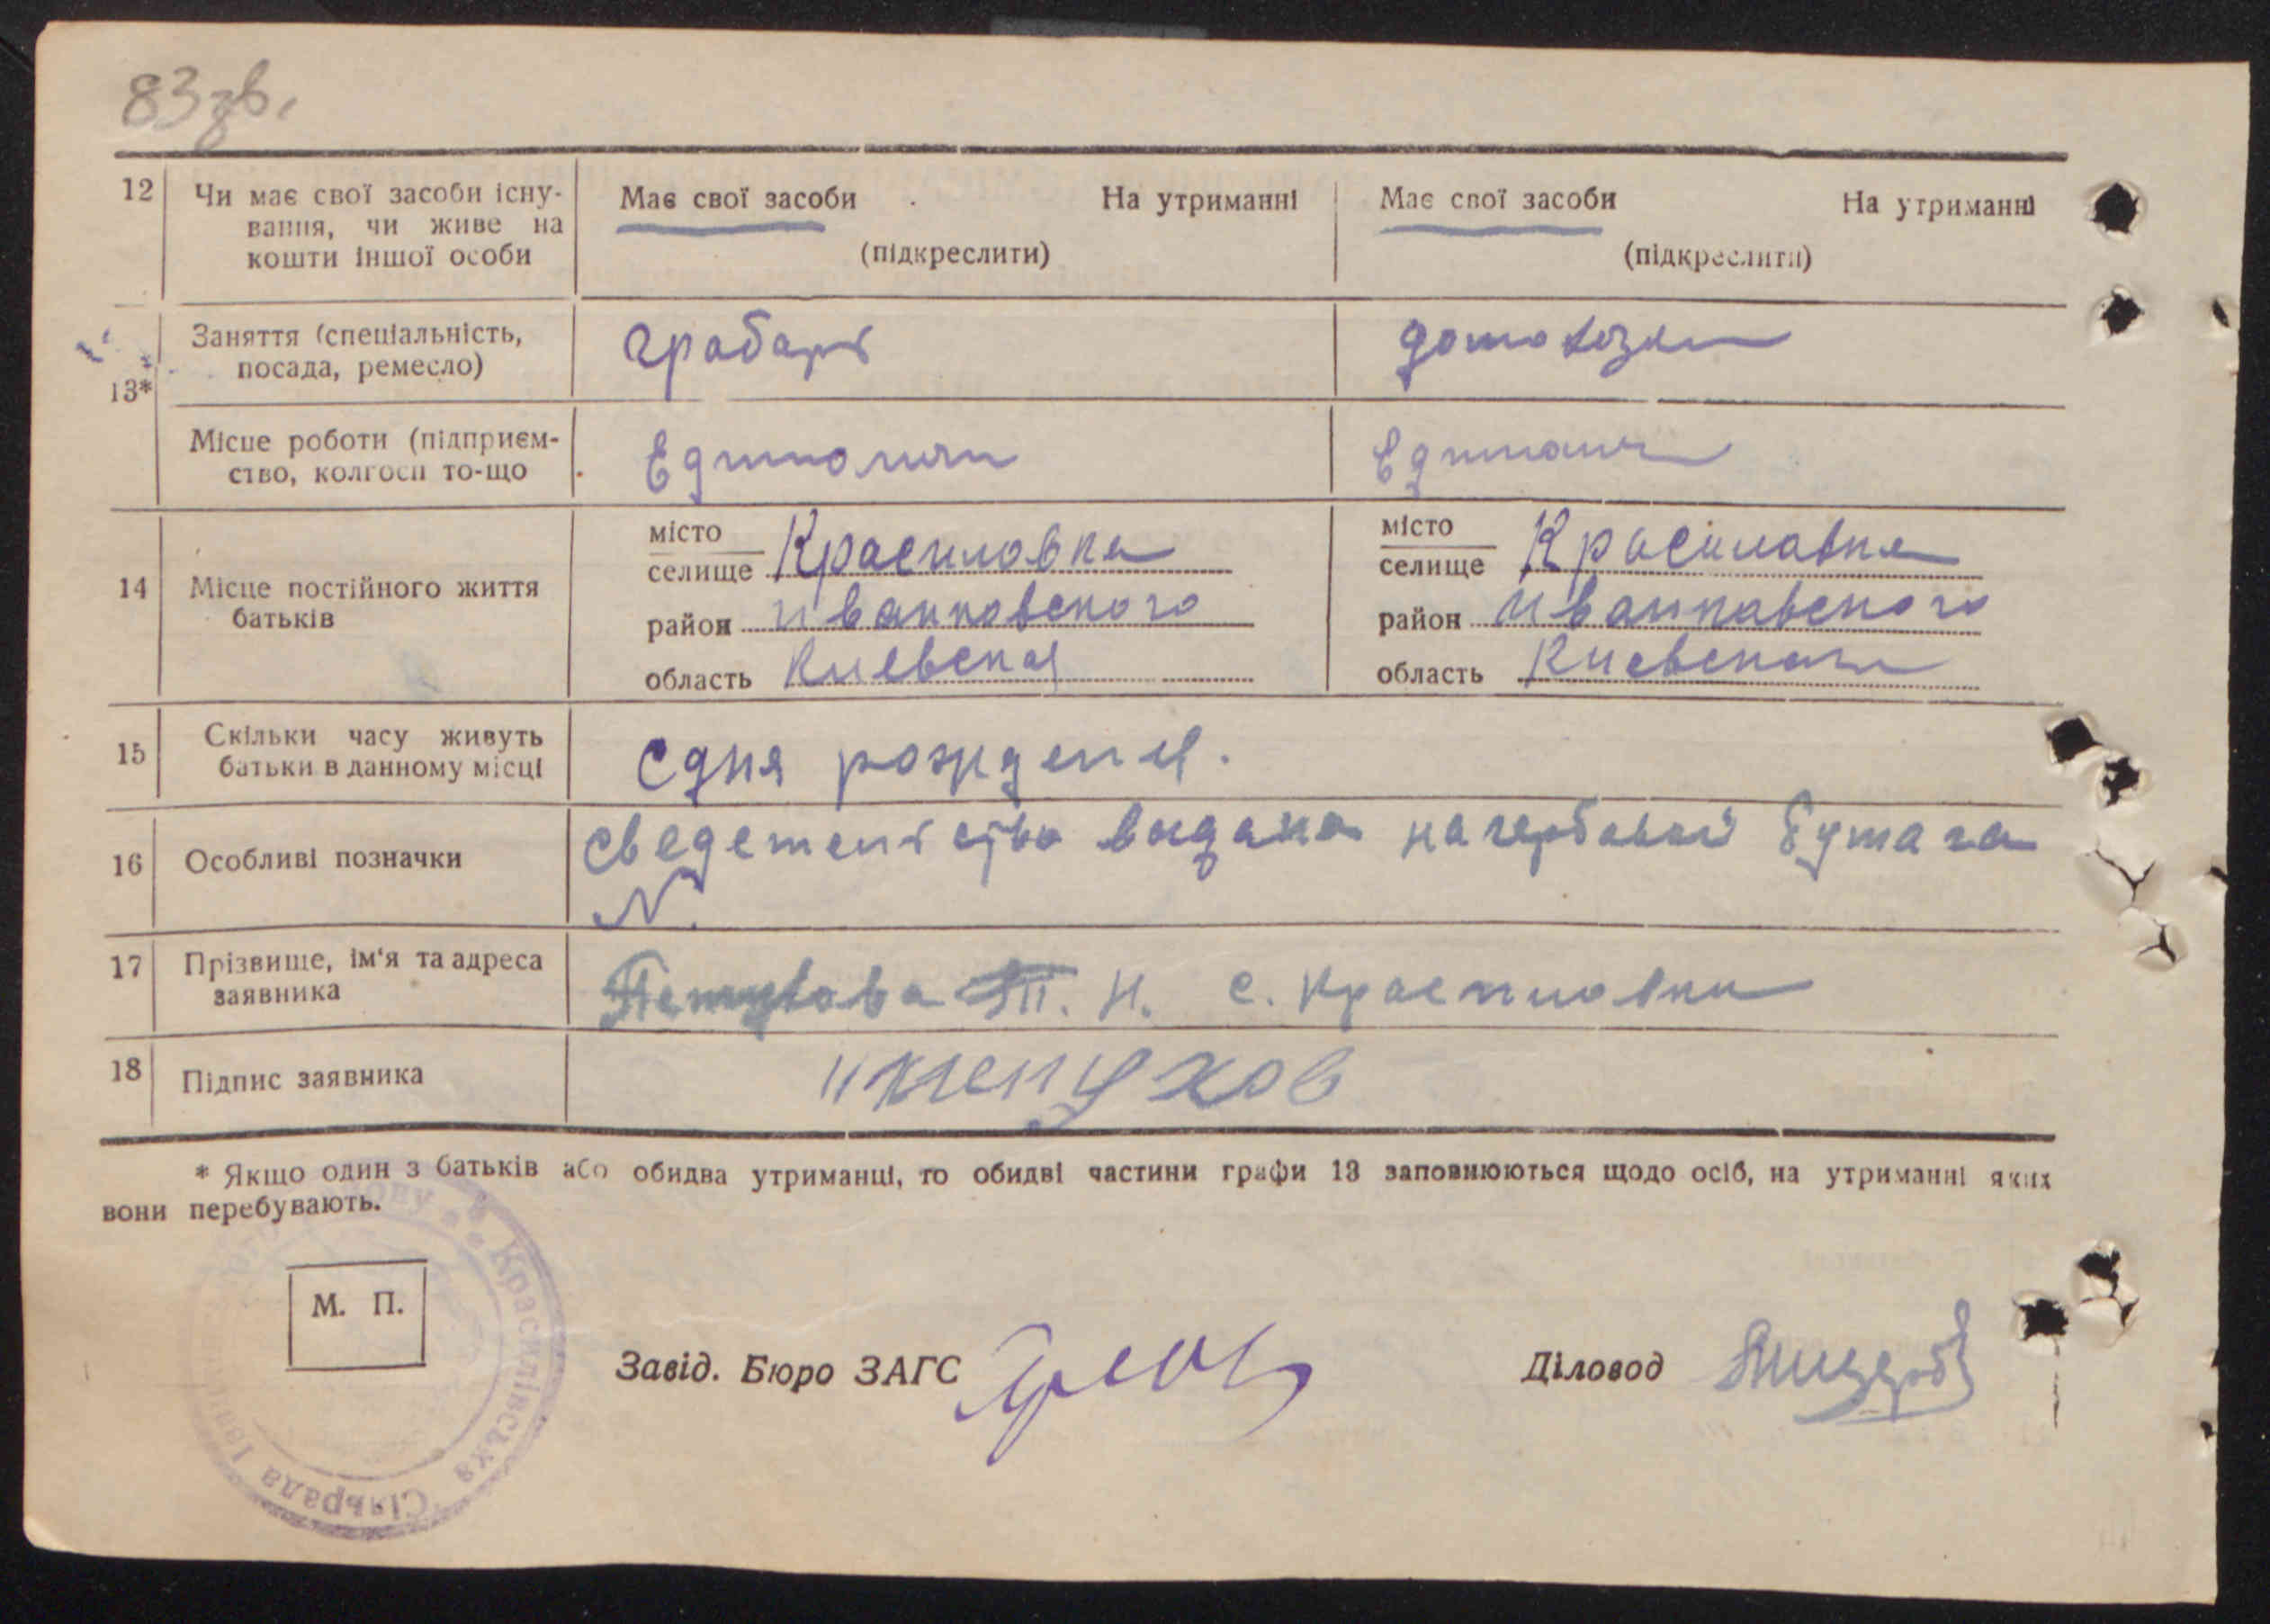 83 зв.
12 Чи має свої засоби існу- Має свої засоби На утриманні Має свої засоби На утриманні
вання, чи живе на
кошти іншої особи (підкреслити) (підкреслити)
Заняття (спеціальність, грабарь домохозяи
посада, ремесло)
13*
Місце роботи (підприєм- Единоличн
ство, колгосп то-що
14 Місце постійного життя
батьків
місто
селище Красиловка
район иванковского
область Киевская
місто
селище Красиловка
район иванковского
область Киевская
15 Скільки часу живуть
батьки в данному місці
Сдня рождения.
16 Особливі позначки
сведетельство выдана на гербовой бумага
N.
17 Прізвище, ім'я та адреса
заявника
Н. с. Красиловки
18 Підпис заявника
* Якщо один з батьків або обидва утриманці, то обидві частини графи 13 заповнюються щодо осіб, на утриманні яких
вони перебувають.
М. П.
Завід. Бюро ЗАГС Діловод
Красилівська Сільрада